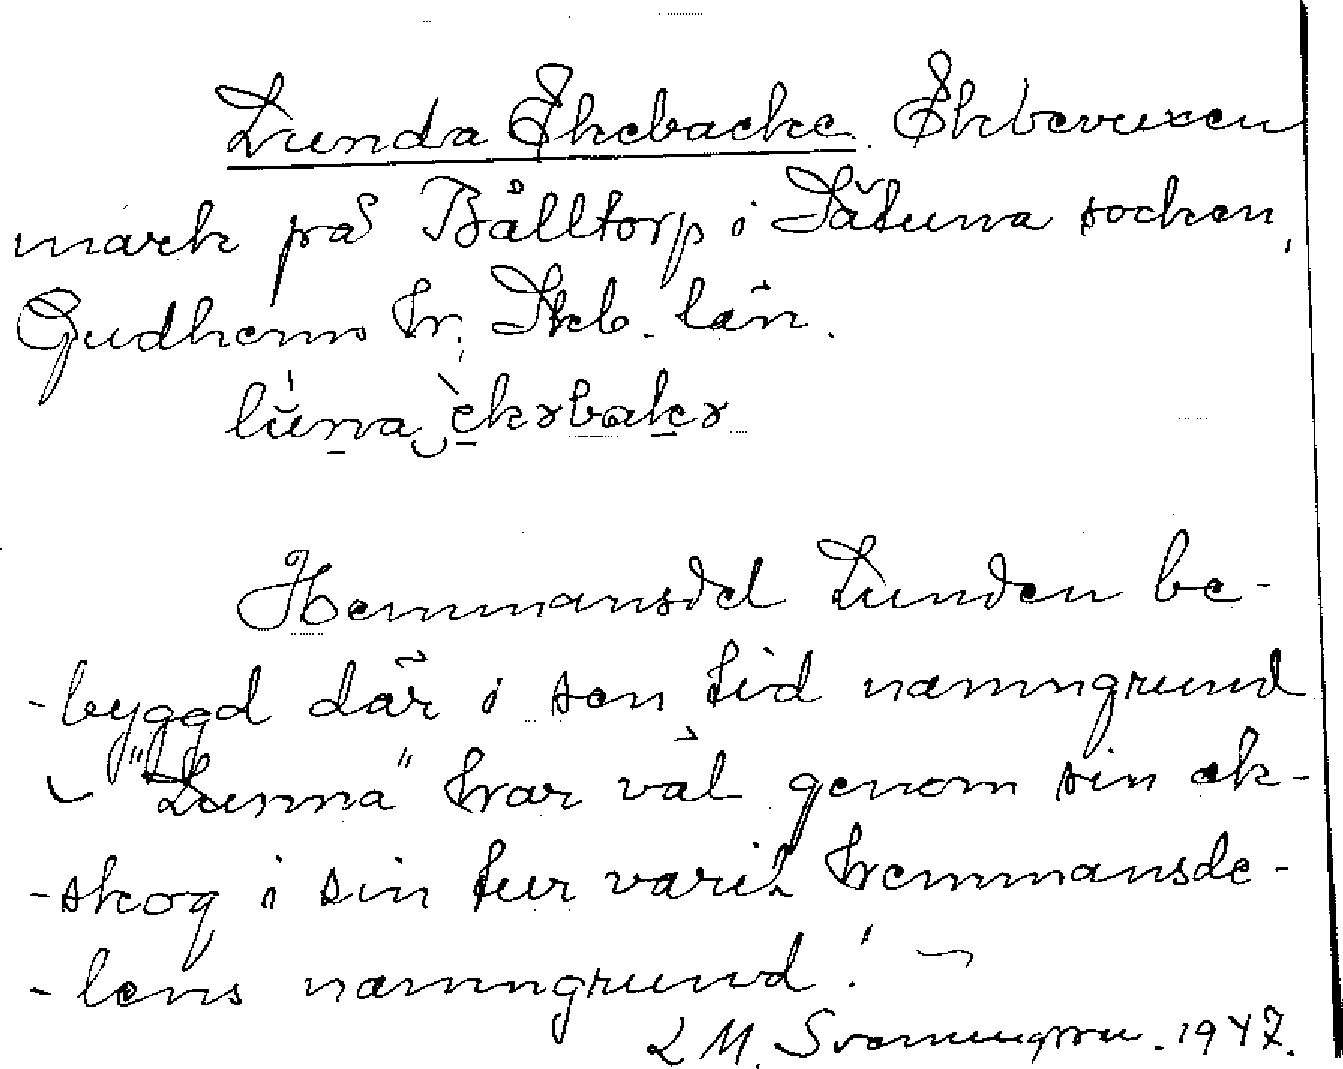 Lunda Ekebacke. Ekbevuxen
mark på Bålltorp i Sätuna socken,
Gudhems hr. Skb. län.
Hemmansdel Lunden be-
-byggd där i sen tid namngrund
"Lunna" har väl genom sin ek-
-skog i sin tur varit hemmansde-
-lens namngrund!
L M. Svenungsson. 1947.